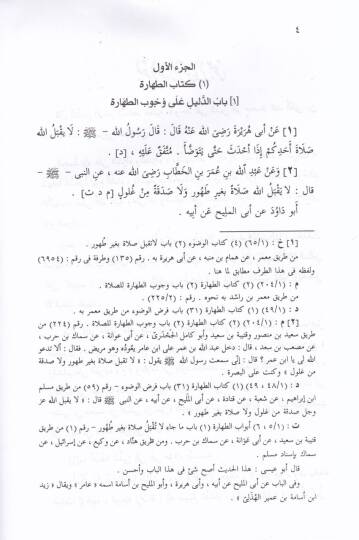 ٤
الجزء الأول
(١) كتاب الطهارة
[١] باب الدَّليل عَلى وُجوب الطهارة
[١] عَنْ أبى هُرَيْرَةَ رَضِىَ الله عَنْهُ قَالَ : قَالَ رَسُولُ الله – ﷺ : لَا يَقْبَلُ الله
صَلَاةَ أَحَدِكُمْ إِذَا أَحْدَثَ حَتَّى يَتَوَضَّأَ . مُتَّفَقٌ عَلَيْهِ ، [د] .
[٢] وَعَنْ عَبْدِ الله بْنِ عُمَرَ بْنِ الخَطَّابِ رَضِىَ الله عنه ، عنِ النبى – ﷺ –
قال : لَا يَقْبَلُ الله صَلَاةً بغيرِ طَهُورٍ وَلَا صَدَقَةً مِنْ غُلولٍ [م د ت] .
أبو دَاوُدَ عن أبى المليح عَن أبِيه .
[١] خ : (١/٦٥) (٤) كتاب الوضوء (٢) باب لاتقبل صلاة بغير طهور .
من طريق معمر ، عن همام بن منبه ، عن أبى هريرة به . رقم (١٣٥) وطرفه فى رقم : (٦٩٥٤)
ولفظه فى هذا الطرف مطابق لما هنا .
م : (١/٢٠٤) (٢) كتاب الطهارة (٢) باب وجوب الطهارة للصلاة .
من طريق معمر بن راشد به نحوه . رقم (٢/٢٢٥) .
د : (١/٤٩) (١) كتاب الطهارة (٣١) باب فرض الوضوء من طريق معمر به .
[٢] م : (١/٢٠٤) (٢) كتاب الطهارة (٢) باب وجوب الطهارة للصلاة . رقم (٢٢٤) من
طريق سعيد بن منصور وقتيبة بن سعيد وأبو كامل الجَحْدَرِىّ ، عن أبى عوانة ، عن سماك بن حرب ،
عن مصعب بن سعد ، قال : دخل عبد الله بن عمر على ابن عامر يعُودُه وهو مريض . فقال : ألا تدعو
الله لى يا ابن عمر ؟ قال : إنى سمعت رسول الله ﷺ يقول : « لا تقبل صلاة بغير طهور ولا صدقة
من غلول » وكنت على البصرة .
د : (١/٤٨ ، ٤٩) (١) كتاب الطهارة (٣١) باب فرض الوضوء – رقم (٥٩) من طريق مسلم
ابن إبراهيم ، عن شعبة ، عن قتادة ، عن أبى المليح ، عن أبيه ، عن النبى ﷺ قال : « لا يقبل الله عز
وجل صدقة من غلول ولا صلاة بغير طهور » .
ت : (١/٥ ، ٦) أبواب الطهارة (١) باب ما جاء لا تُقْبَلُ صلاة بغير طُهُور – رقم (١) من طريق
قتيبة بن سعيد ، عن أبى عَوَانة ، عن سماك بن حرب . ومن طريق هنَّاد ، عن وكيع ، عن إسرائيل ، عن
سماك بإسناد مسلم .
قال أبو عيسى : هذا الحديث أصح شئ فى هذا الباب وأحسن .
وفى الباب عن أبى المليح عن أبيه ، وأبى هريرة ، وأبو المليح بن أسامة اسمه « عامر » ويقال « زيد
ابن أسامة بن عمير الهُذَلِىّ » .